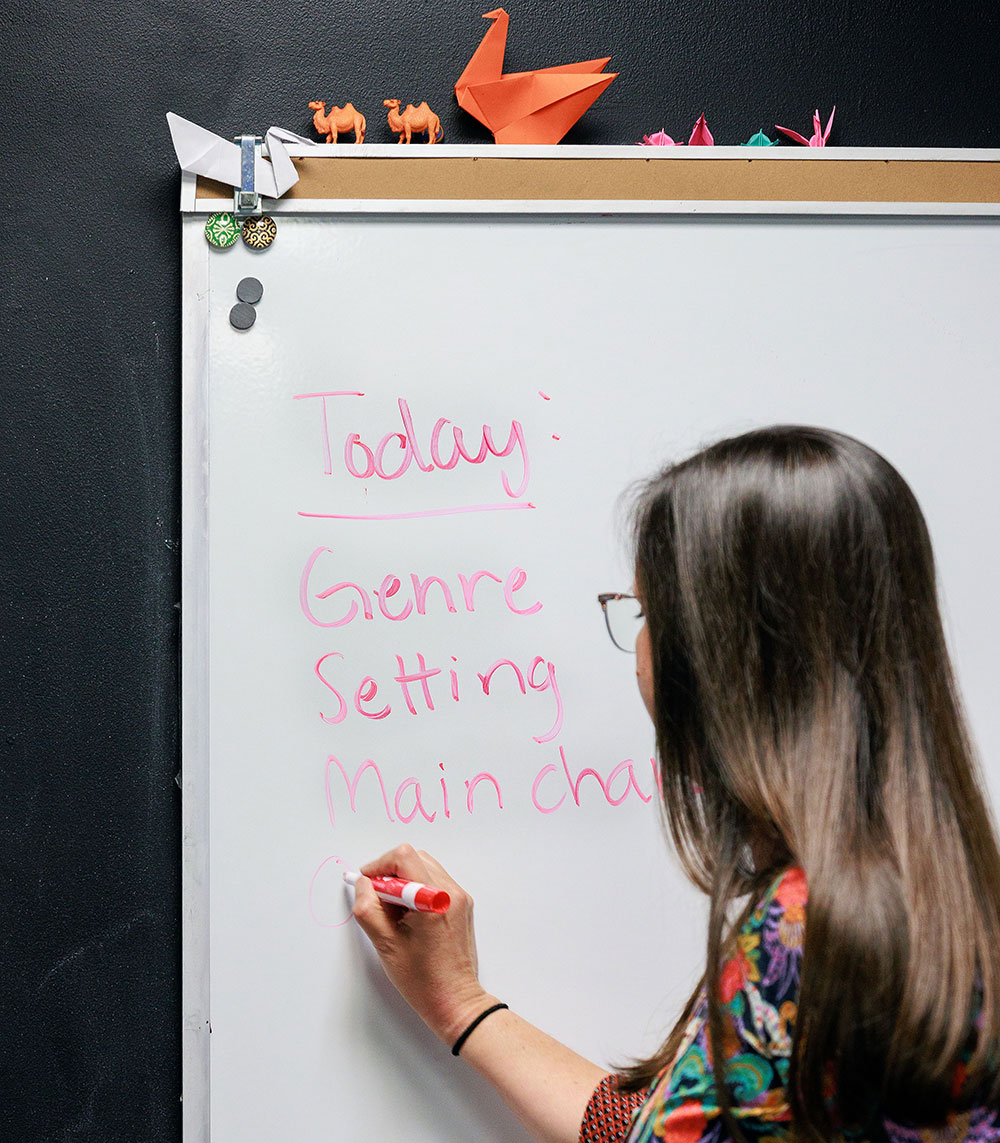 Today:
Genre
Setting
Main cha